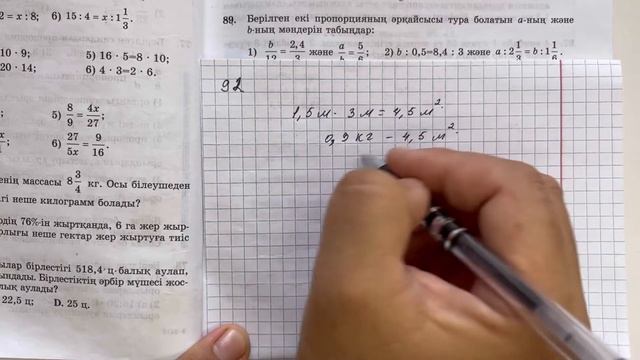 2 = x : 8; 6) 15 : 4 = x : 1 1/3.
10 · 9; 5) 16 · 5 = 8 · 10;
20 · 14; 6) 4 · 3 = 2 · 6.
5) 8/9 = 4x/27;
6) 27/5x = 9/16.
енің массасы 8 3/4 кг. Осы білеушеден
гі неше килограмм болады?
рдің 76%-ін жыртқанда, 6 га жер жыр-
рлығы неше гектар жер жыртуға тиіс
ылар бірлестігі 518,4 ц балық аулап,
ындады. Бірлестіктің әрбір мүшесі жос-
лық аулады?
22,5 ц; D. 25 ц.
89. Берілген екі пропорцияның әрқайсысы тура болатын a-ның және
b-ның мәндерін табыңдар:
1) b/12 = 2,4/3 және a/b = 5/6; 2) b : 0,5=8,4 : 3 және a : 2 1/3 = b : 1 1/6.
92
1,5 м · 3 м = 4,5 м².
0,9 кг – 4,5 м².